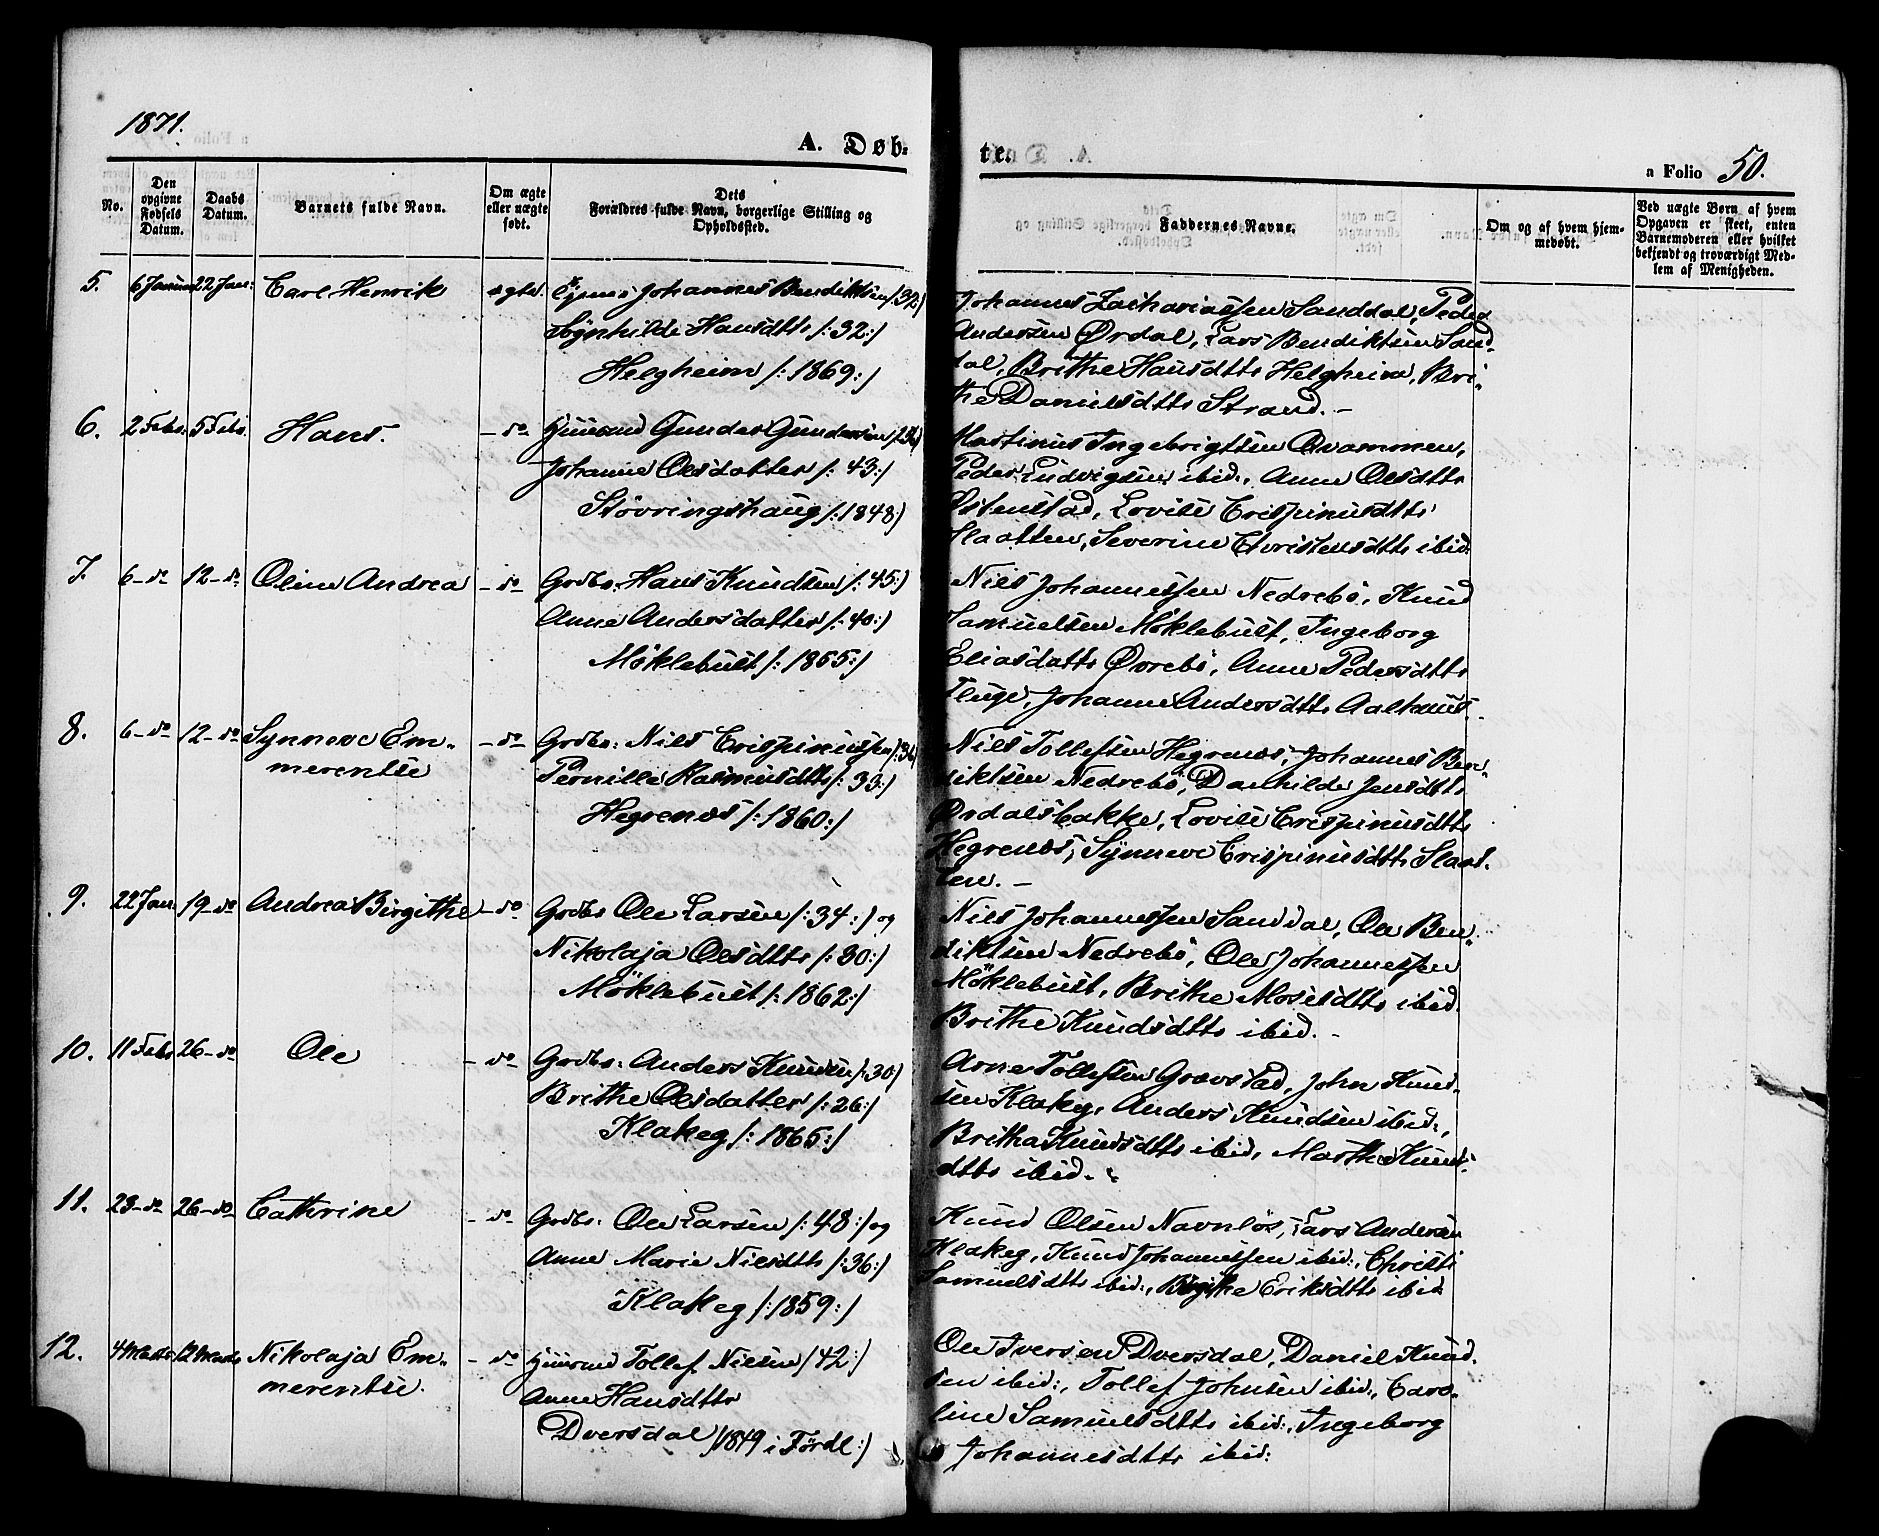 1871.
A. Døb-
te.
a Folio 50.
No.
Den opgivne Fødsels Datum.
Daabs Datum.
Barnets fulde Navn.
Om ægte eller uægte født.
Dets Forældres fulde Navn, borgerlige Stilling og Opholdssted.
Faddernes Navne.
Om og af hvem hjemmedøbt.
Ved uægte Børn af hvem Opgaven er skeet, enten Barnemoderen eller hvilket bekjendt og troværdigt Medlem af Menigheden.
5. 6 Januar 22 Jan: Carl Henrik ægte. Johannes Bendiktsen /:32:/
Synhilde Hansdttr /:32:/
Helgheim /:1869:/
Johannes Zachariassen Sanddal, Peder
Andersen Ørdal, Lars Bendiktsen Sand-
dal, Brithe Hansdttr Helgheim, Bri-
the Danielsdttr Strand. -
6. 2 Febr. 5 Febr. Hans. - do Huusmd Gunder Gundersen
Johanne Olsdatter /:43:/
Støvringshaug /:1848:/
Martinus Ingebrigtsen Qvammen,
Peder Ludvigsen ibid., Anne Olsdttr
Østenstad, Lovise Crispinusdttr
Slaatten, Severine Christensdttr ibid.
7. 6 - do 12 - do Oline Andrea - do Grdbr. Hans Knudsen /:45:/
Anne Andersdatter /:40:/
Møklebust /:1855:/
Niels Johannessen Nedrebø, Knud
Samuelsen Møklebust, Ingeborg
Eliasdattr Øvrebø, Anne Pedersdttr
Fluge, Johanne Andersdttr Aalhus.
8. 6 - do 12 - do Synneve Em- - do Grdbr: Niels Crispinussen /:36/
merentse Pernille Rasmusdttr /:33:/
Hegrenæs /:1860:/
Niels Tollefsen Hegrenæs, Johannes Ben-
diktsen Nedrebø, Danhilde Jensdttr
Ørdalsbakke, Lovise Crispinusdttr
Hegrenæs, Synneve Crispinusdttr Slaat-
ten. -
9. 22 Jan: 19 - do Andrea Birgithe - do Grdbr Ole Larsen /:34:/ og
Nikolaja Olsdttr /:30:/
Møklebust /:1862:/
Niels Johannessen Sanddal, Ole Ben-
diktsen Nedrebø, Ole Johannessen
Møklebust, Brithe Mosesdttr ibid.
Brithe Knudsdttr ibid. -
10. 11 Febr 26 - do Ole - do Grdbr: Anders Knudsen /:30/
Brithe Olsdatter /:26:/
Klakeg /:1865:/
Arne Tollefsen Grøvstad, John Knud-
sen Klakeg, Anders Knudsen ibid.,
Britha Knudsdttr ibid, Marthe Knuds-
dttr ibid.
11. 23 - do 26 - do Cathrine - do Grdbr. Ole Larsen /:48:/ og
Anne Marie Nielsdttr /:36:/
Klakeg /:1859:/
Knud Olsen Navnløs, Lars Andersen
Klakeg, Knud Johannessen ibid., Christi
Samuelsdttr ibid., Birgithe Eriksdttr ibid
12. 4 Marts 12 Marts Nikolaja Em- - do Huusmd Tollef Nielsen /42:/
merentse. Anne Hansdttr
Dversdal /1849 i Førde:/
Ole Iversen Dversdal, Daniel Knud-
sen ibid., Tollef Johnsen ibid., Caro-
line Samuelsdttr ibid:, Ingeborg
Johannesdttr ibid: